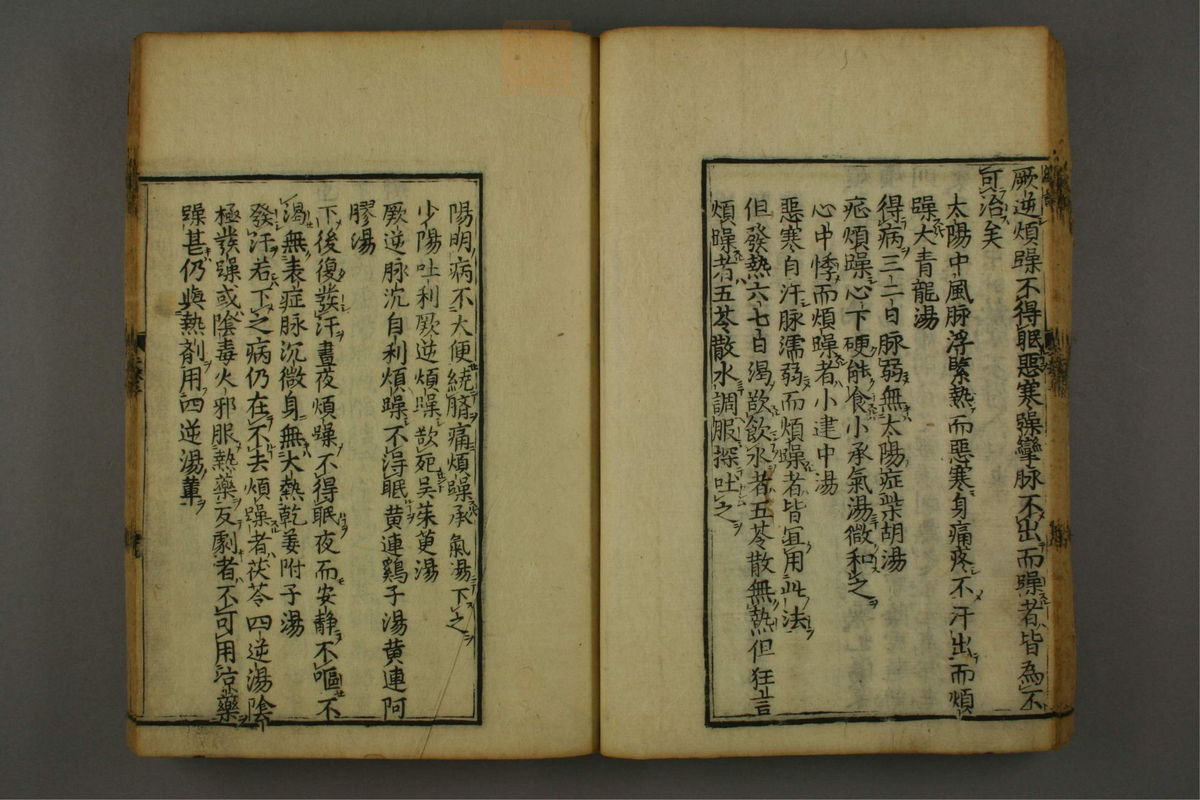 厥逆煩躁不得眠惡寒躁攣脉不出而躁者皆為不
可治矣
太陽中風脉浮緊熱而惡寒身痛疼不汗出而煩
躁大青龍湯
得病三二日脉弱無太陽症柴胡湯
症煩躁心下硬能食小承氣湯微和之
心中悸而煩躁者小建中湯
惡寒自汗脉濡弱而煩躁者皆冝用此法
但發熱六七日渴欲飲水者五苓散無熱但狂言
煩躁者五苓散水調服探吐之
陽明病不大便繞臍痛煩躁承氣湯下之
少陽吐利厥逆煩躁欲死吳茱萸湯
厥逆脉沉自利煩躁不得眠黄連鷄子湯黄連阿
膠湯
下後復發汗晝夜煩躁不得眠夜而安静不嘔不
渴無表症脉沉微身無大熱乾姜附子湯
發汗若下之病仍在不去煩躁者茯苓四逆湯陰
極發躁或陰毒火邪服熱藥反劇者不可用凉藥
躁甚仍與熱剤用四逆湯軰